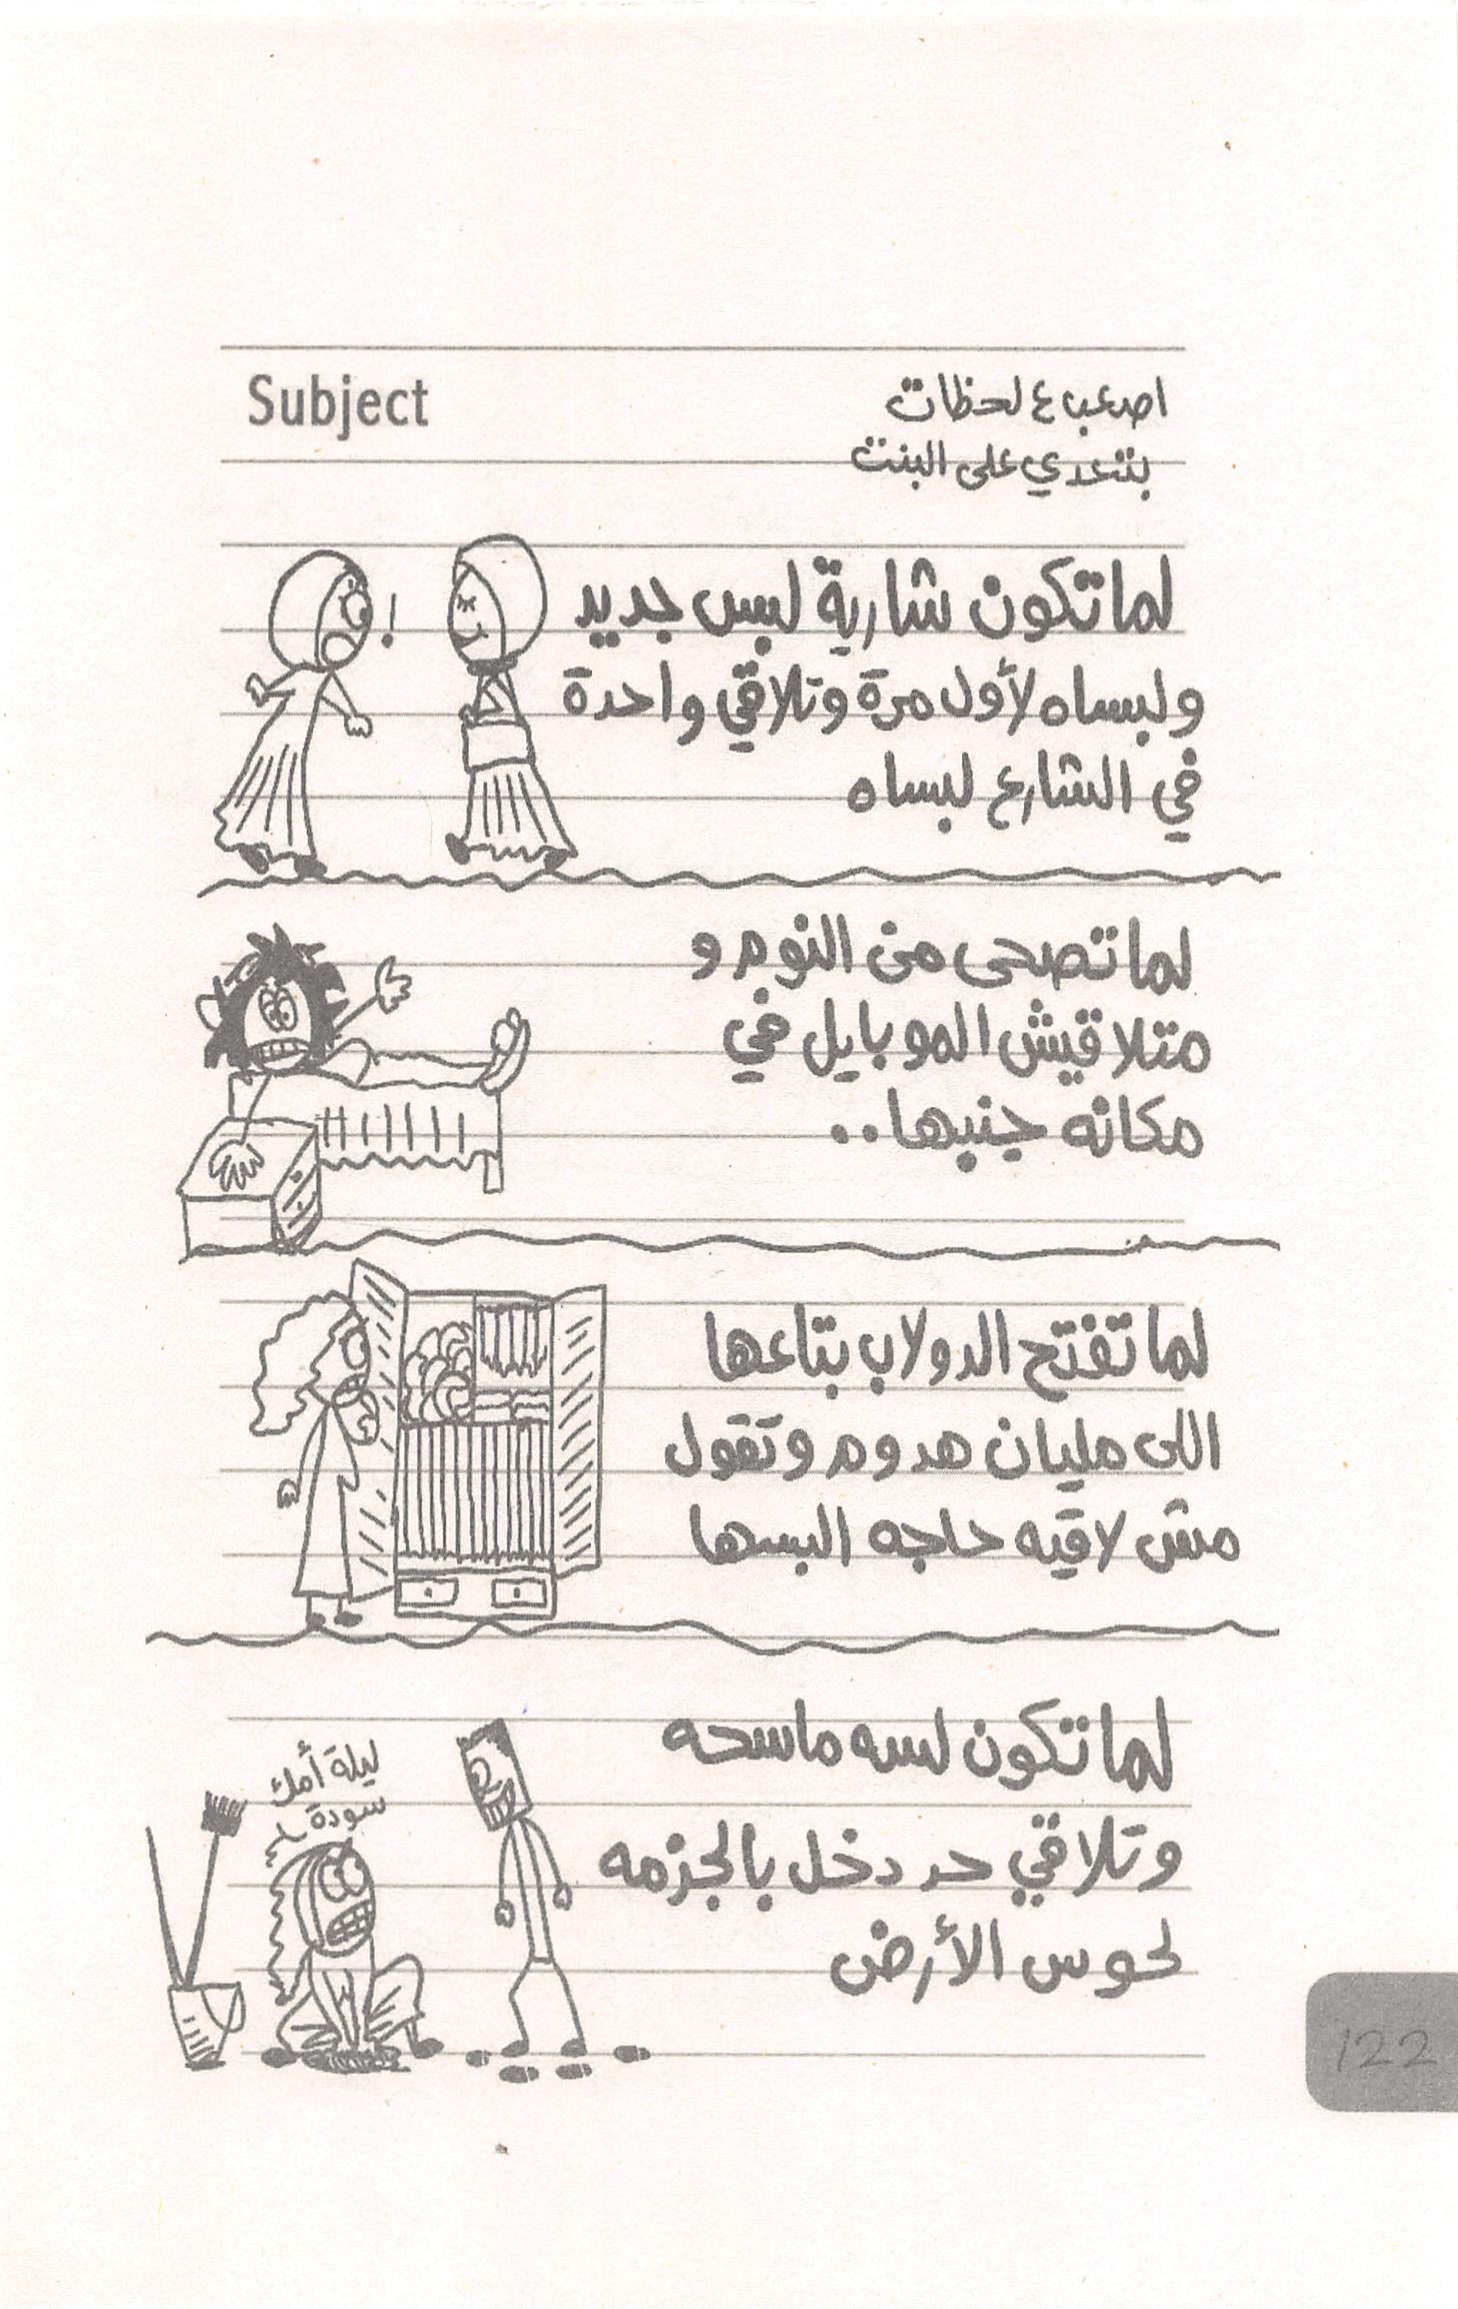 Subject
اصعب ٤ لحظات
بتعدي على البنت
لما تكون شارية لبس جديد
ولبساه لأول مرة وتلاقي واحدة
في الشارع لبساه
لما تصحى من النوم و
متلاقيش الموبايل في
مكانه جنبها..
لما تفتح الدولاب بتاعها
اللى مليان هدوم وتقول
مش لاقيه حاجه البسها
لما تكون لسه ماسحه
وتلاقي حد دخل بالجزمه
لحوس الأرض
ليلة أمك
سودة
122